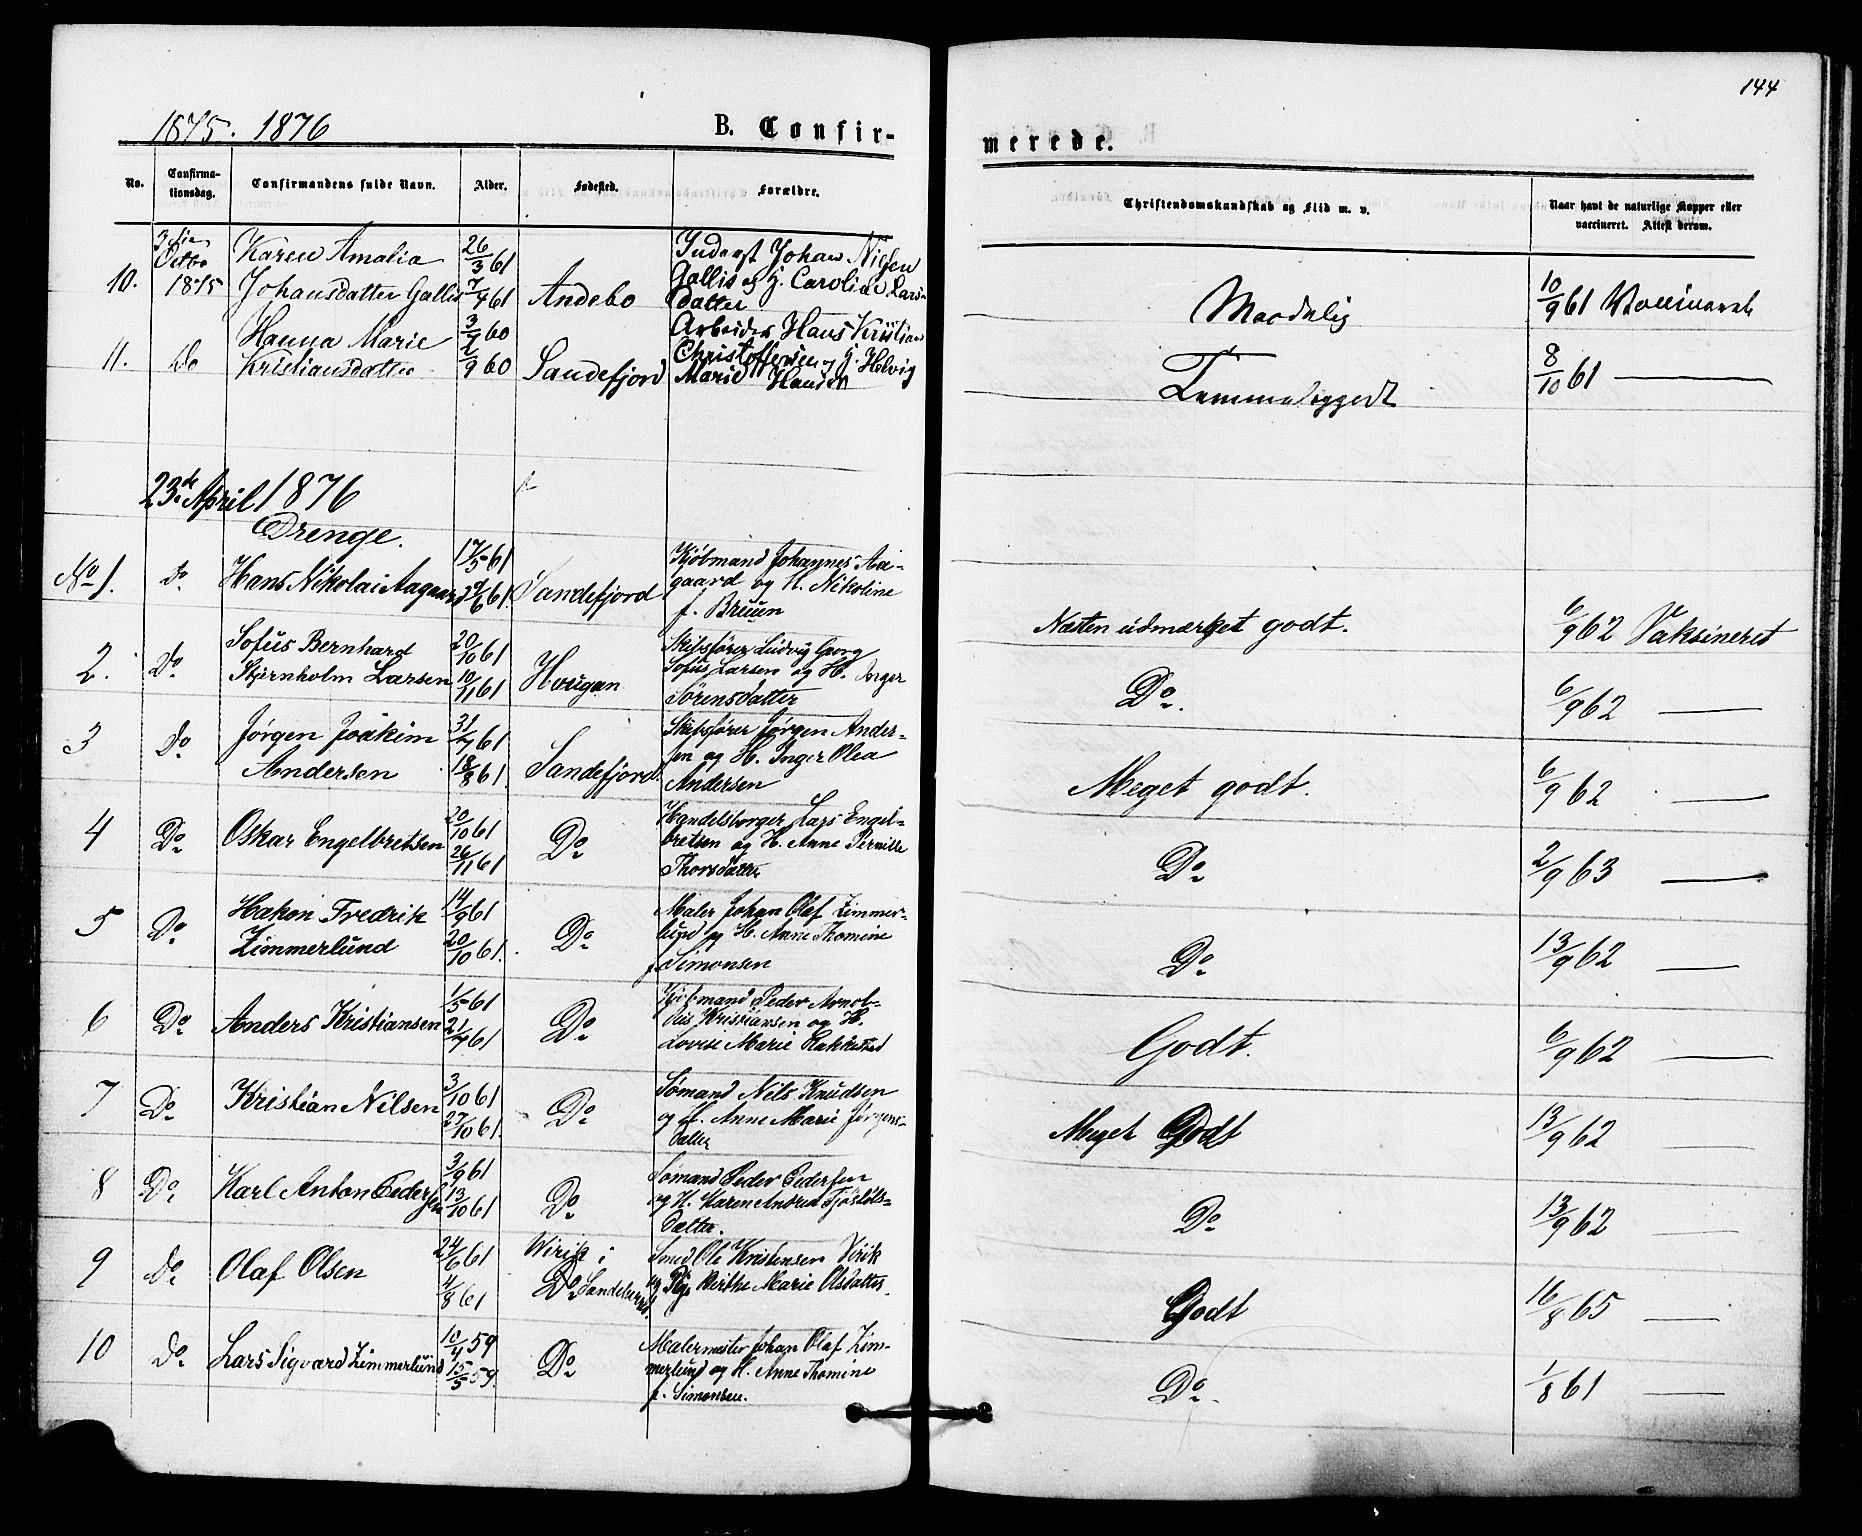 144
1875. 1876
B. Confir-
merede.
No.
Confirma-
tionsdag.
Confirmandens fulde Navn.
Alder.
Fødested.
Forældre.
Christendomskundskab og Flid m. v.
Naar havt de naturlige Kopper eller
vaccineret. Attest derom.
3die
Octbr
1875
10.
Karen Amalia
Johansdatter Gallis
26/3 61
7/4 61
Andebo
Inderst Johan Nilsen
Gallis og H. Caroline Lars-
datter
Maadelig
10/9 61 Vaccineret
11.
Do
Hanna Marie
Kristiansdatter
60
9 60
Sandefjord
Arbeider Hans Kristian
Christoffersen og H. Helvig
Marie Hansen
Temmeliggodt
8/10 61 —
23de April 1876
Drenge.
No 1.
Do
Hans Nikolai Aagaard
17/5 61
61.
Sandefjord
Kjøbmand Johannes Aa-
gaard og H. Nikoline
f. Bruun
Næsten udmærket godt.
6/9 62 Vaksineret
2.
Do
Sofus Bernhard
Stjernholm Larsen
20/10 61
10/11 61
Haugan
Skibsfører Ludvig Georg
Sofus Larsen og H. Inger
Sörensdatter
Do.
6/9 62 —
3
Do
Jørgen Joakim
Andersen
31/7 61
18/8 61.
Sandefjord.
Skibsfører Jørgen Ander-
sen og H. Inger Olea
Andersen
Meget godt.
6/9 62 —
4
Do
Oskar Engelbretsen
20/10 61
26/11 61
Do
Handelsborger Lars Engel-
bretsen og H. Anne Pernille
Thorsdatter
Do
2/9 63 —
5
Do
Hakon Fredrik
Zimmerlund
14/9 61
20/10 61.
Do
Maler Johan Olaf Zimmer-
lund og H. Anne Thomine
f. Simonsen
Do
13/9 62 —
6
Do
Anders Kristiansen
1/5 61
21/7 61
Do
Kjøbmand Peder Arnol-
dus Kristiansen og H.
Lovise Marie
Godt.
6/9 62 —
7
Do
Kristian Nilsen
3/10 61
27/10 61.
Do
Sømand Nils Knudsen
og H. Anne Marie Jørgens-
datter
Meget Godt
13/9 62 —
8
Do
Karl Anton Pedersen
3/9 61
13/10 61
Do
Sømand Peder Pedersen
og H. Karen Andrea
datter.
Do
13/9 62 —
9
Do
Olaf Olsen
24/6 61
4/8 61
Wirik i
Do Sandeherred.
Smed Ole Kristensen Virik
og Pige Berthe Marie Olsdatter.
Godt
16/8 65 —
10
Do
Lars Sigvard Zimmerlund
10/4 59
15/5 59.
Do
Malermester Johan Olaf Zim-
merlund og H. Anne Thomine
f. Simonsen.
Do.
1/8 61 —